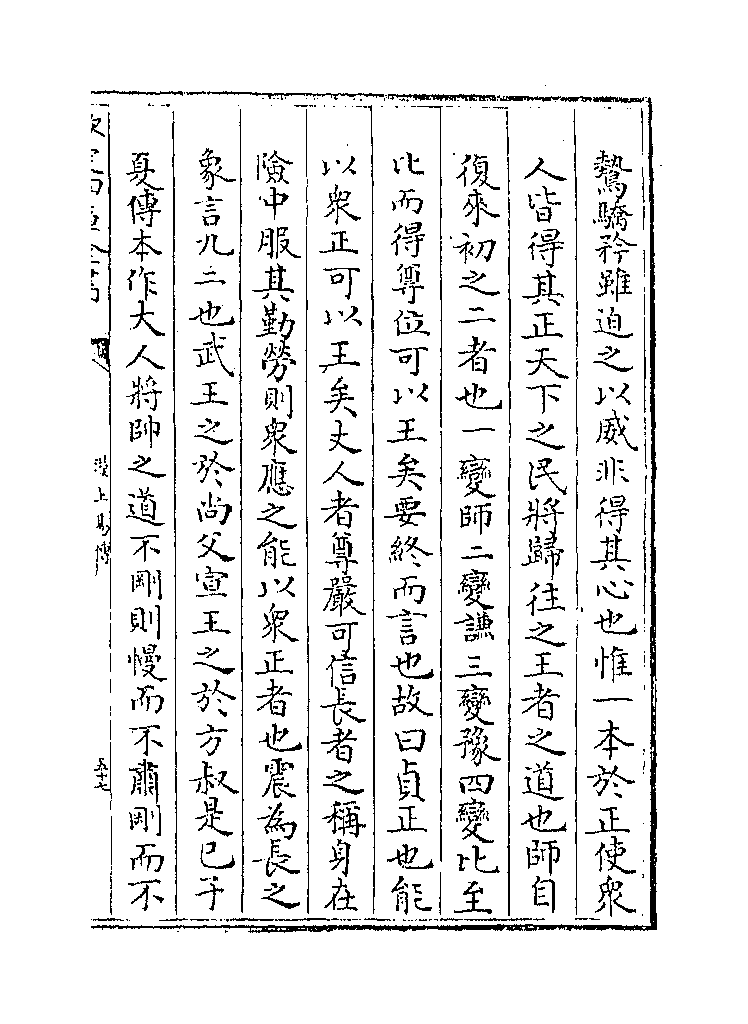 驁驕矜雖迫之以威非得其心也惟一本於正使衆
人皆得其正天下之民將歸往之王者之道也師自
復來初之二者也一變師二變謙三變豫四變比至
比而得尊位可以王矣要終而言也故曰貞正也能
以衆正可以王矣丈人者尊嚴可信長者之稱身在
險中服其勤勞則衆應之能以衆正者也震為長之
象言九二也武王之於尚父宣王之於方叔是已子
夏傳本作大人將帥之道不剛則慢而不肅剛而不
漢上易傳
五十七